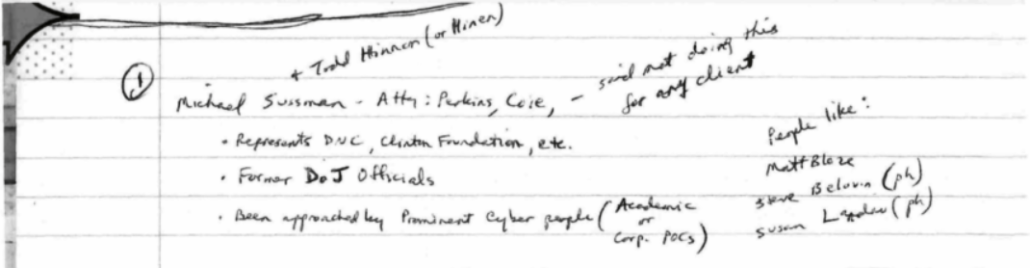 + Todd Hinnen (or Hinen)
① Michael Sussman - Atty: Perkins, Coie, - said not doing this
for any client
• Represents DNC, Clinton Foundation, etc.
• Former DoJ Officials
• Been approached by Prominent Cyber people (Academic
or
Corp. POCs)
People like:
Matt Blaze
Steve Belovin (ph)
Susan Landau (ph)